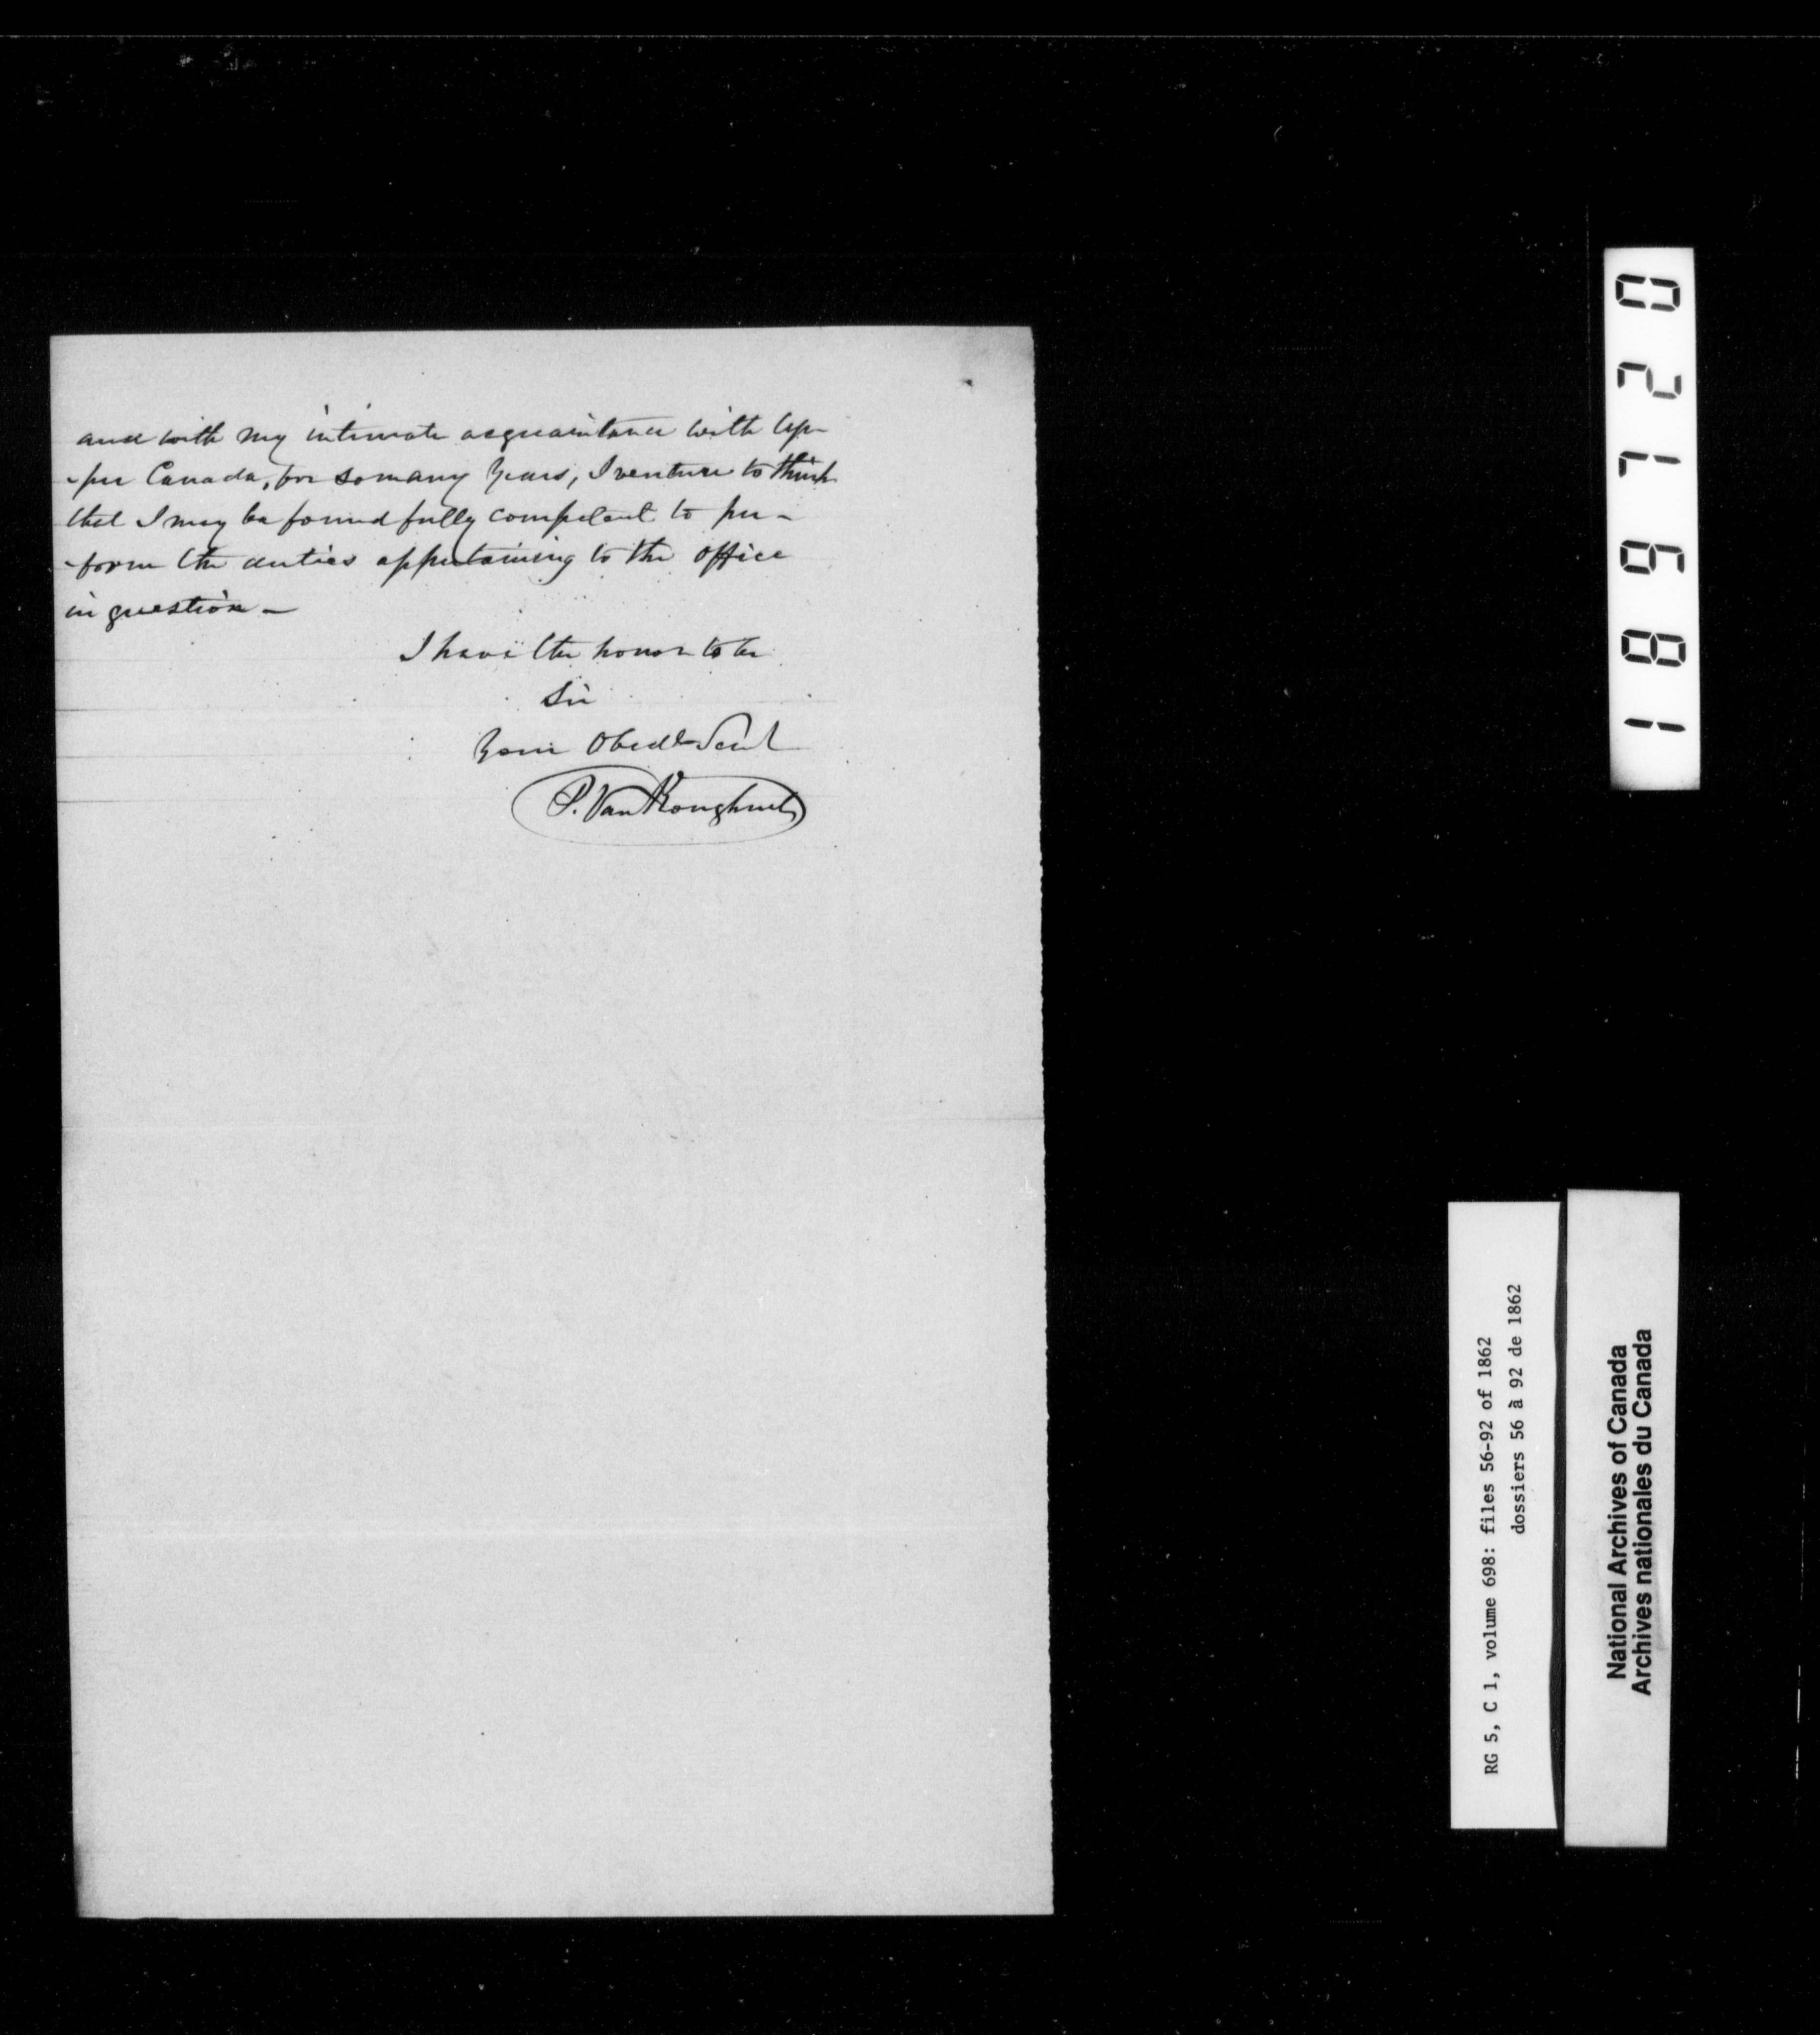 and with my intimate acquaintance with Up-
-per Canada, for so many Years, I venture to think
that I may be found fully competent to per-
-form the duties appertaining to the office
in question -
I have the honor to be
Sir
Your Obedt Servt
P. VanKoughnet
021681
RG 5, C 1, volume 698: files 56-92 of 1862
dossiers 56 à 92 de 1862
National Archives of Canada
Archives nationales du Canada